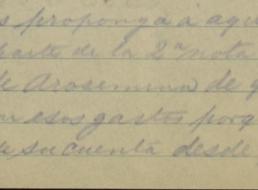 s proponga a aqu
parte de la 2ª nota
de Arosemena de q
n esos gastos porq
su cuenta desde